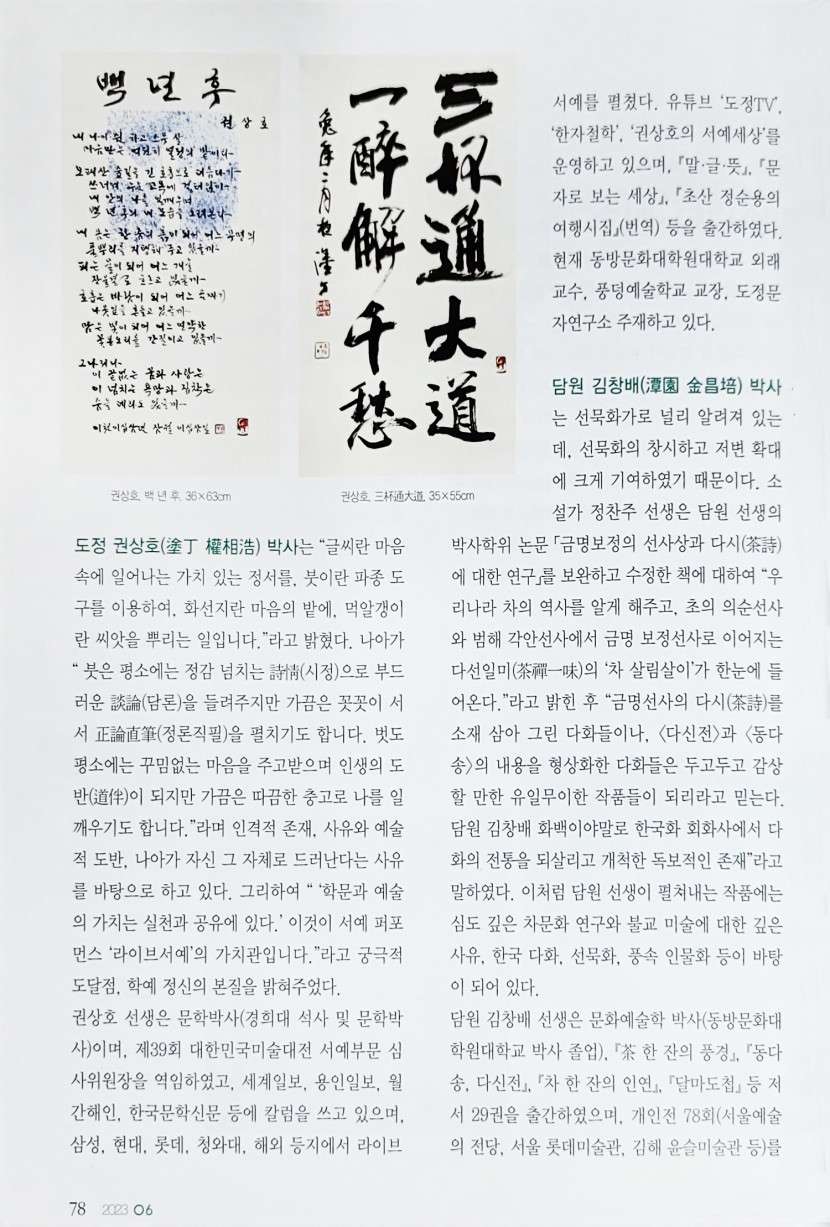 백 년 후
권상호
三杯通大道
一醉解千愁
兔年二月 塗丁
권상호, 백 년 후, 36×63cm
권상호, 三杯通大道, 35×55cm
도정 권상호(塗丁 權相浩) 박사는 “글씨란 마음
속에 일어나는 가치 있는 정서를, 붓이란 파종 도
구를 이용하여, 화선지란 마음의 밭에, 먹알갱이
란 씨앗을 뿌리는 일입니다.”라고 밝혔다. 나아가
“ 붓은 평소에는 정감 넘치는 詩情(시정)으로 부드
러운 談論(담론)을 들려주지만 가끔은 꼿꼿이 서
서 正論直筆(정론직필)을 펼치기도 합니다. 벗도
평소에는 꾸밈없는 마음을 주고받으며 인생의 도
반(道伴)이 되지만 가끔은 따끔한 충고로 나를 일
깨우기도 합니다.”라며 인격적 존재, 사유와 예술
적 도반, 나아가 자신 그 자체로 드러난다는 사유
를 바탕으로 하고 있다. 그리하여 “ ‘학문과 예술
의 가치는 실천과 공유에 있다.’ 이것이 서예 퍼포
먼스 ‘라이브서예’의 가치관입니다.”라고 궁극적
도달점, 학예 정신의 본질을 밝혀주었다.
권상호 선생은 문학박사(경희대 석사 및 문학박
사)이며, 제39회 대한민국미술대전 서예부문 심
사위원장을 역임하였고, 세계일보, 용인일보, 월
간해인, 한국문학신문 등에 칼럼을 쓰고 있으며,
삼성, 현대, 롯데, 청와대, 해외 등지에서 라이브
서예를 펼쳤다. 유튜브 ‘도정TV’,
‘한자철학’, ‘권상호의 서예세상’를
운영하고 있으며, 『말·글·뜻』, 『문
자로 보는 세상』, 『초산 정순용의
여행시집』(번역) 등을 출간하였다.
현재 동방문화대학원대학교 외래
교수, 풍덩예술학교 교장, 도정문
자연구소 주재하고 있다.
담원 김창배(潭園 金昌培) 박사
는 선묵화가로 널리 알려져 있는
데, 선묵화의 창시하고 저변 확대
에 크게 기여하였기 때문이다. 소
설가 정찬주 선생은 담원 선생의
박사학위 논문 「금명보정의 선사상과 다시(茶詩)
에 대한 연구」를 보완하고 수정한 책에 대하여 “우
리나라 차의 역사를 알게 해주고, 초의 의순선사
와 범해 각안선사에서 금명 보정선사로 이어지는
다선일미(茶禪一味)의 ‘차 살림살이’가 한눈에 들
어온다.”라고 밝힌 후 “금명선사의 다시(茶詩)를
소재 삼아 그린 다화들이나, 〈다신전〉과 〈동다
송〉의 내용을 형상화한 다화들은 두고두고 감상
할 만한 유일무이한 작품들이 되리라고 믿는다.
담원 김창배 화백이야말로 한국화 회화사에서 다
화의 전통을 되살리고 개척한 독보적인 존재”라고
말하였다. 이처럼 담원 선생이 펼쳐내는 작품에는
심도 깊은 차문화 연구와 불교 미술에 대한 깊은
사유, 한국 다화, 선묵화, 풍속 인물화 등이 바탕
이 되어 있다.
담원 김창배 선생은 문화예술학 박사(동방문화대
학원대학교 박사 졸업), 『茶 한 잔의 풍경』, 『동다
송, 다신전』, 『차 한 잔의 인연』, 『달마도첩』 등 저
서 29권을 출간하였으며, 개인전 78회(서울예술
의 전당, 서울 롯데미술관, 김해 윤슬미술관 등)를
78 2023 06